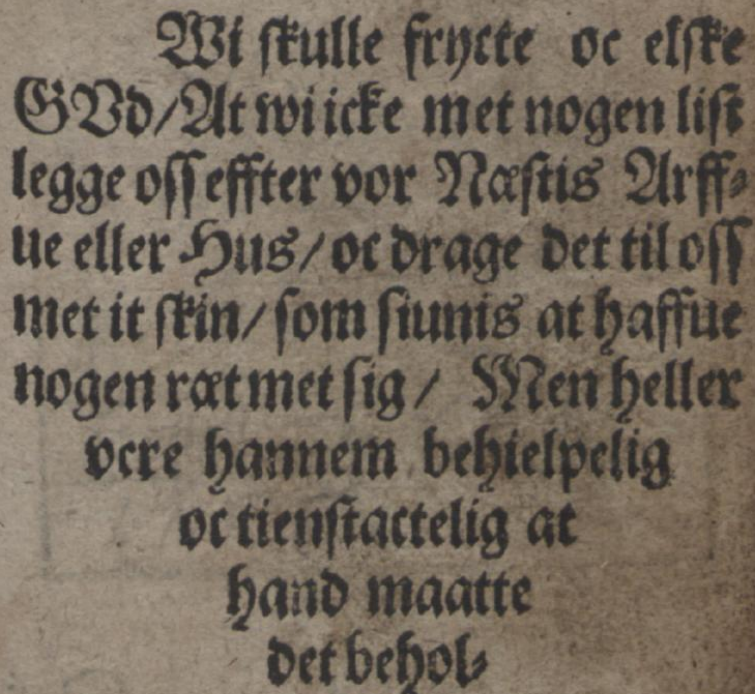 Wi skulle frycte oc elske
GVd/At wi icke met nogen list
legge oss effter vor Næstis Arff⸗
ue eller Hus/oc drage det til oss
met it skin/som siunis at haffue
nogen ræt met sig/ Men heller
vere hannem behielpelig
oc tienstactelig at
hand maatte
det behol⸗